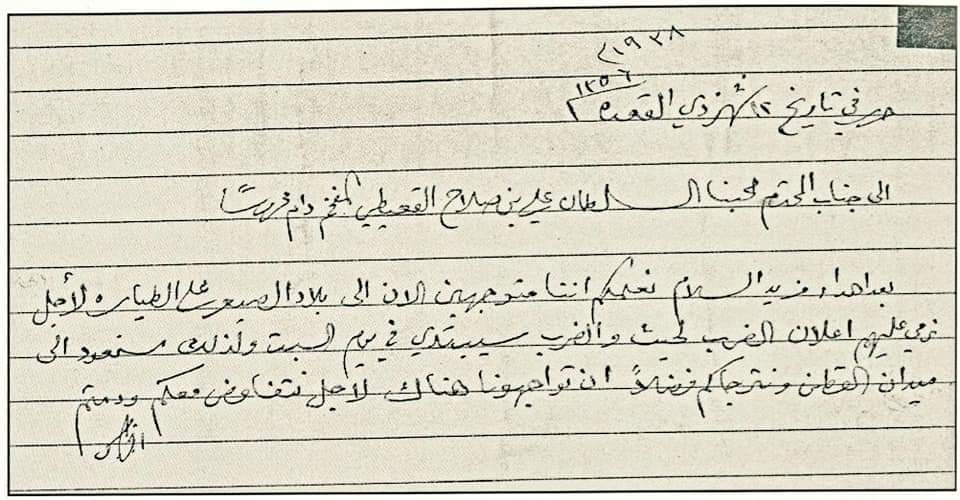 ١٩٣٨م
١٣٥٦
حرر في تاريخ ١٢ شهر ذي القعده
الى جناب المحترم محبنا السلطان علي بن صلاح القعيطي المفخم دام محروسًا
بعد اهداء مزيد السلام نعلمكم اننا متوجهين الان الى بلاد الصيعر على الطياره لأجل
نرمي عليهم اعلان الضرب بحيث والضرب سيبتدي في يوم السبت ولذلك سنعود الى
ميدان القطن ونترجاكم فضلاً ان تواجهونا هناك لأجل نتفاوض معكم ودمتم